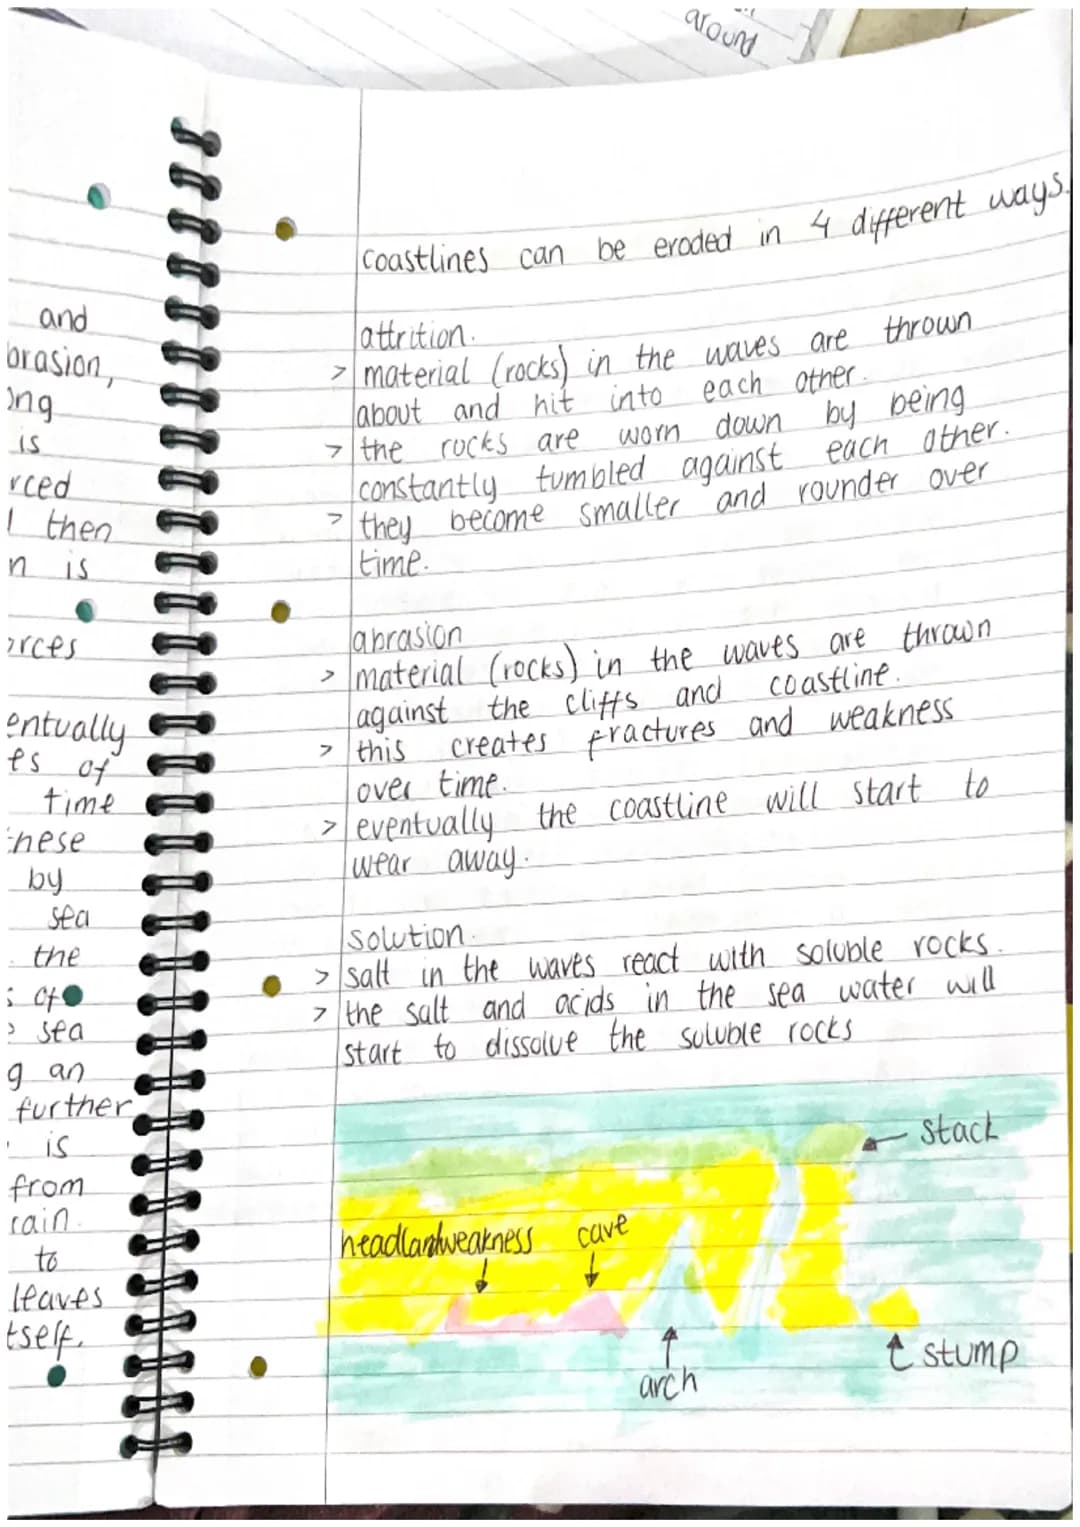 around
and
brasion,
ong
is
rced
then
n is
orces
entually
es of
time
these
by
sea
the
of
sea
g an
further
is
from
rain
to
leaves
tself.
coastlines can be eroded in 4 different ways.
attrition.
> material (rocks) in the waves are thrown
about and hit into each other.
> the rocks are worn down by being
constantly tumbled against each other.
> they become smaller and rounder over
time.
abrasion
> material (rocks) in the waves are thrown
against the cliffs and coastline.
> this creates fractures and weakness
over time.
> eventually the coastline will start to
wear away.
solution.
> salt in the waves react with soluble rocks.
> the salt and acids in the sea water will
start to dissolve the soluble rocks
stack
headland weakness cave
arch
stump